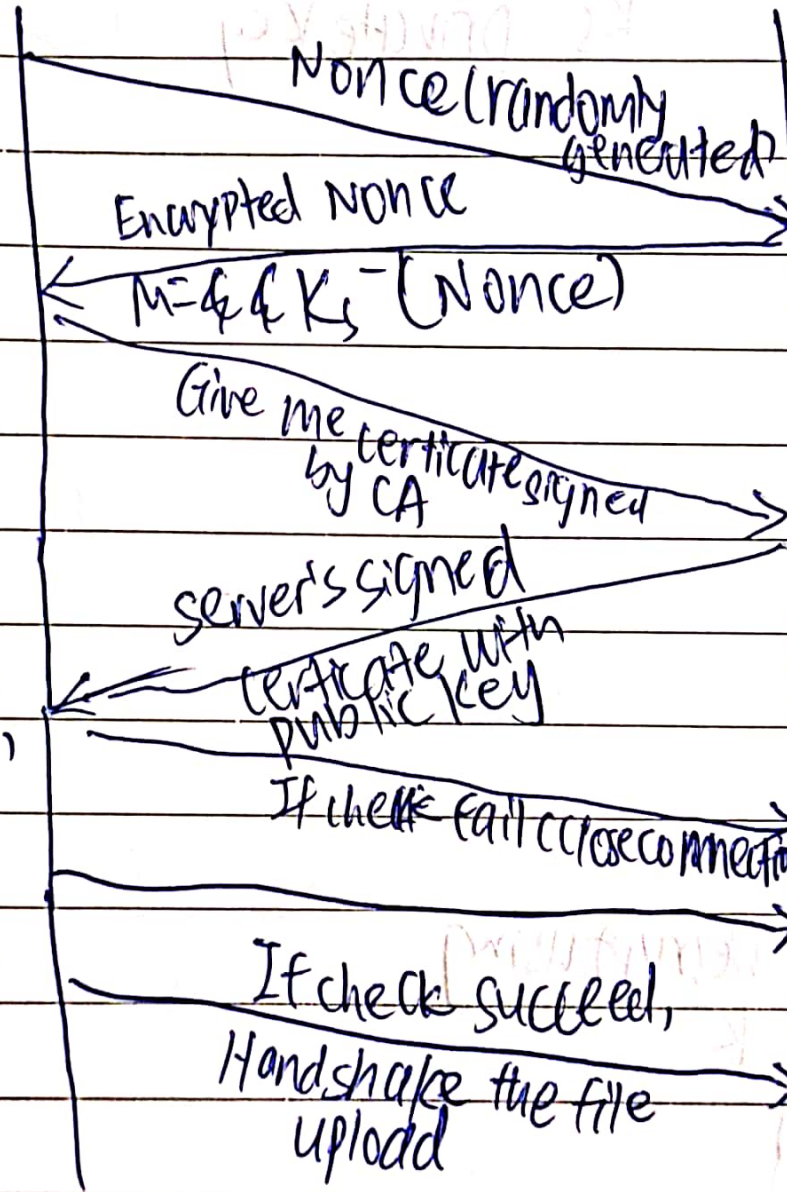 Nonce (randomly
generated)
Encrypted Nonce
M= Ks⁻ (Nonce)
Give me certicate signed
by CA
server's signed
certicate with
public key
If check fail close connecti
If check succeed,
Handshake the file
upload